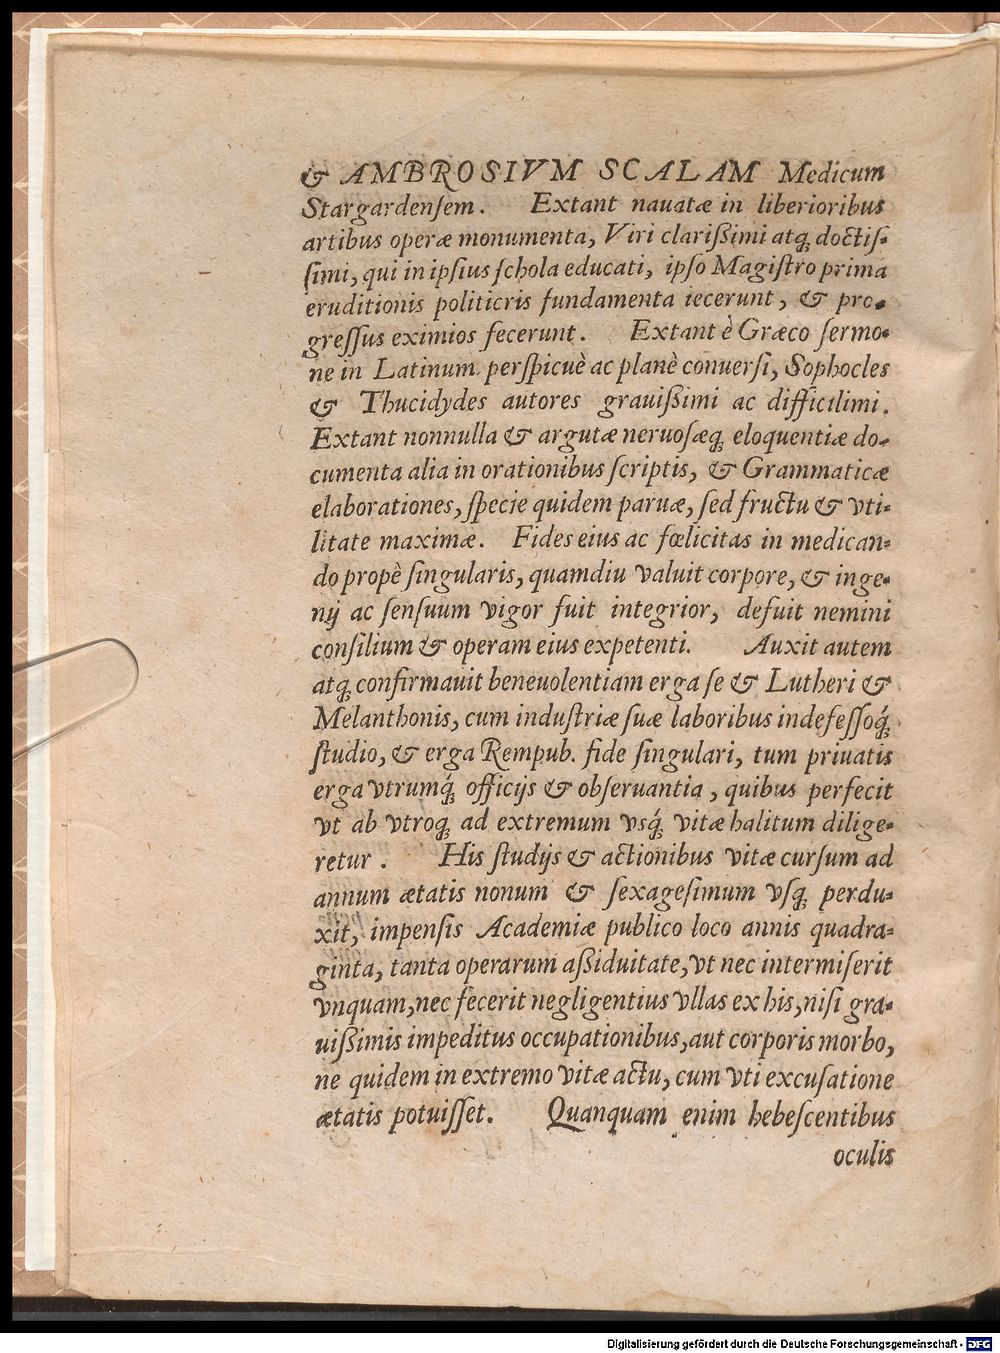 & AMBROSIVM SCALAM Medicum
Stargardensem. Extant nauatæ in liberioribus
artibus operæ monumenta, Viri clarißimi atq́ doctis-
simi, qui in ipsius schola educati, ipso Magistro prima
eruditionis politicris fundamenta iecerunt, & pro-
gressus eximios fecerunt. Extant è Græco sermo-
ne in Latinum perspicuè ac planè conuersi, Sophocles
& Thucidydes autores grauißimi ac difficilimi.
Extant nonnulla & argutæ neruosæq́ eloquentiæ do-
cumenta alia in orationibus scriptis, & Grammaticæ
elaborationes, specie quidem paruæ, sed fructu & vti-
litate maximæ. Fides eius ac fœlicitas in medican-
do propè singularis, quamdiu valuit corpore, & inge-
nij ac sensuum vigor fuit integrior, defuit nemini
consilium & operam eius expetenti. Auxit autem
atq́ confirmauit beneuolentiam erga se & Lutheri &
Melanthonis, cum industriæ suæ laboribus indefessoq́
studio, & erga Rempub. fide singulari, tum priuatis
erga vtrumq́ officijs & obseruantia, quibus perfecit
vt ab vtroq́ ad extremum vsq́ vitæ halitum dilige-
retur. His studijs & actionibus vitæ cursum ad
annum ætatis nonum & sexagesimum vsq́ perdu-
xit, impensis Academiæ publico loco annis quadra-
ginta, tanta operarum aßiduitate, vt nec intermiserit
vnquam, nec fecerit negligentius vllas ex his, nisi gra-
uißimis impeditus occupationibus, aut corporis morbo,
ne quidem in extremo vitæ actu, cum vti excusatione
ætatis potuisset. Quanquam enim hebescentibus
oculis
Digitalisierung gefördert durch die Deutsche Forschungsgemeinschaft - DFG